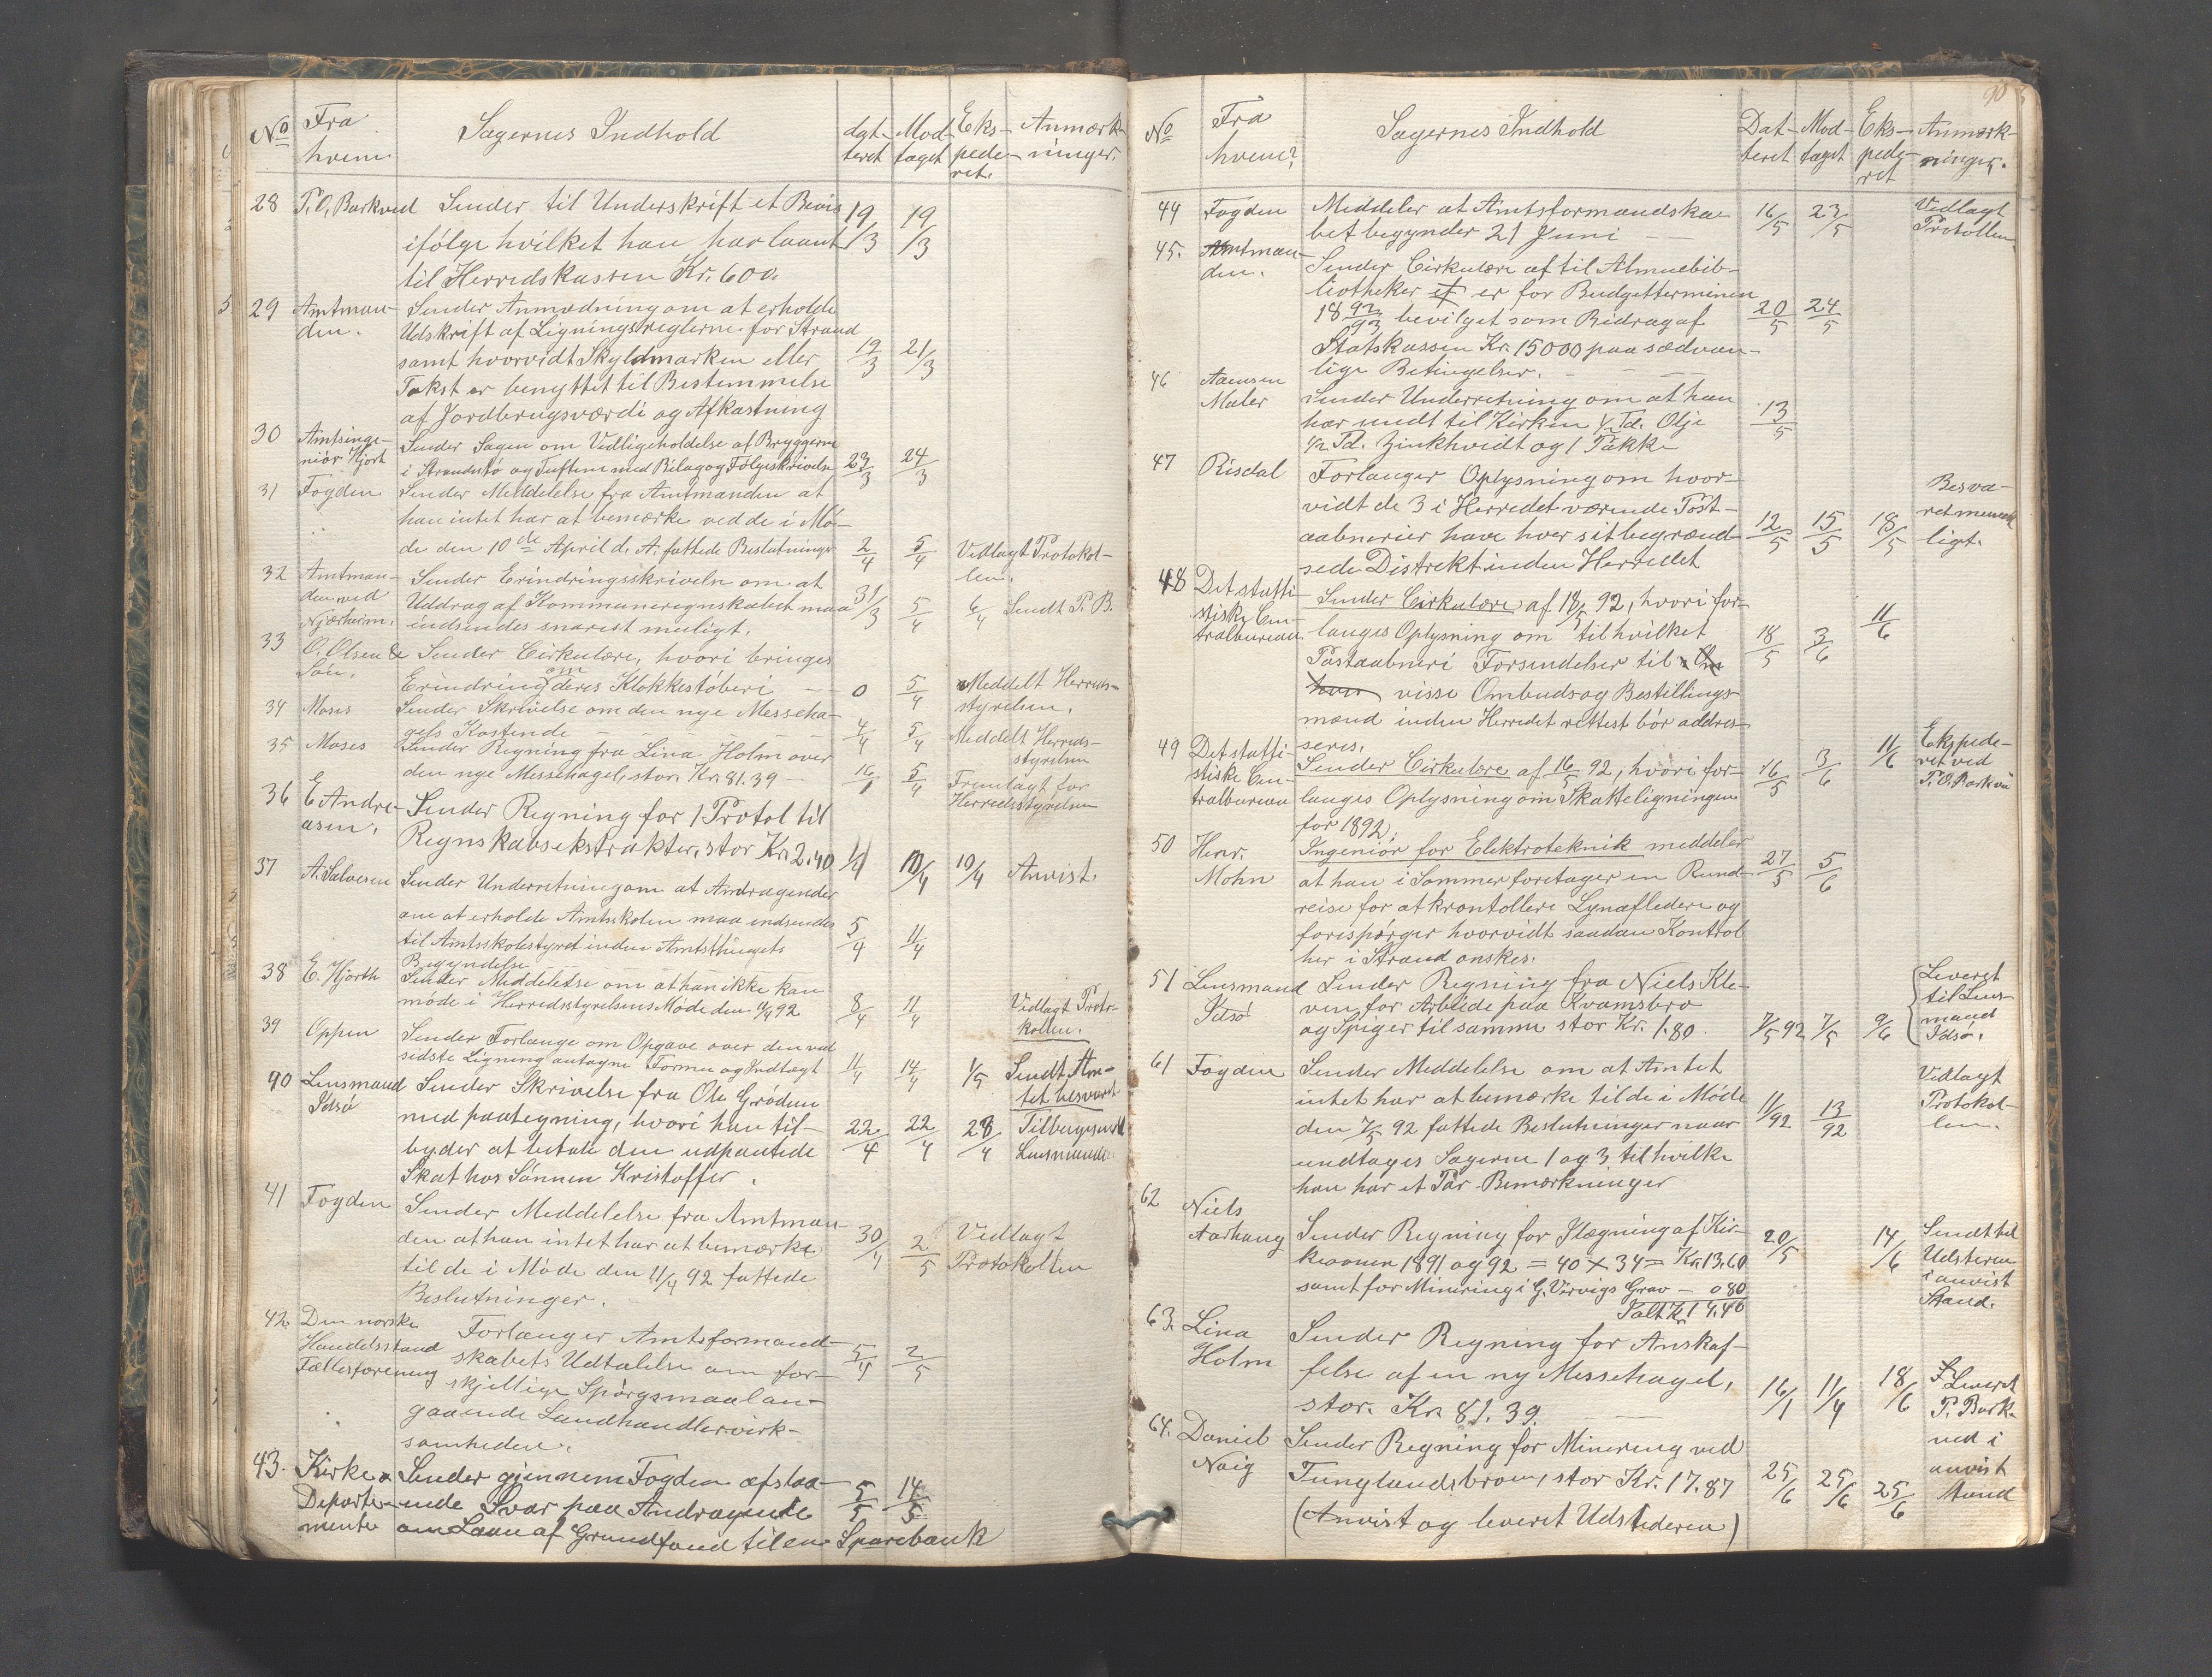 No Fra hvem Sagernes Indhold dat- teret Mod- taget Eks- pede- ret. Anmærk- ninger.
28 P. O. Barkved Sender til Underskrift et Bevis 19/3 19/3
ifølge hvilket han har laant
til Herredskassen Kr. 600.
29 Amtman- Sender Anmodning om at erholde
den. Udskrift af Ligningsreglerne for Strand
samt hvorvidt Skyldmarken eller 19/3 21/3
Takst er benyttet til Bestemmelse
af Jordbrugsværdi og Afkastning
30 Amtsinge- Sender Sagen om Vedligeholdelse af Bryggerne
niør Hjort i Strandstø og Tuften med Bilag og Følgeskrivelse 23/3 24/3
31 Fogden Sender Meddelelse fra Amtmanden at
han intet har at bemærke ved de i Mø-
de den 10de April d. A. fattede Beslutninger 2/4 5/4 Vedlagt Protokol-
len.
32 Amtman- Sender Erindringsskrivelse om at
den ved Uddrag af Kommuneregnskabet maa 31/3 5/4 6/4 Sendt P. B.
Njærheim. indsendes snarest muligt.
33 O. Olsen & Sender Cirkulære, hvori bringes
Søn. Erindring om deres Klokkestøberi — 0 5/4 Meddelt Herreds-
styrelsen.
34 Moses Sender Skrivelse om den nye Messeha-
gels Kostende 4/4 5/4 Meddelt Herreds-
styrelsen
35 Moses Sender Regning fra Lina Holm over
den nye Messehagel, stor Kr 81.39 — 16/1 5/4 Fremlagt for
Herredsstyrelsen
36 E Andre- Sender Regning for 1 Protol til
asen. Regnskabsekstrakter, stor Kr. 2.40 1/4 10/4 10/4 Anvist.
37 A. Salvesen Sender Underretning om at Andragender
om at erholde Amtsskolen maa indsendes 5/4 11/4
til Amtsskolestyret inden Amtsthingets
Begyndelse
38 E. Hjorth Sender Meddelelse om at han ikke kan
møde i Herredsstyrelsens Møde den 11/4 92 8/4 11/4 Vidlagt Proto-
kollen.
39 Oppen Sender Forlange om Opgave over den ved
sidste Ligning antagne Formue og Indtægt 11/4 14/4 1/5 Sendt Am-
tet besvaret
90 Lensmand Sender Skrivelse fra Ole Grøden
Idsø med paategning, hvori han til- 22/4 22/4 28/4 Tilbagesendt
byder at betale den udpantede Lensmanden
Skat hos Sønnen Kristoffer.
41 Fogden Sender Meddelelse fra Amtman-
den at han intet har at bemærke 30/4 2/5 Vidlagt
til de i Møde den 11/4 92 fattede Protokollen
Beslutninger.
42. Den norske Forlanger Amtsformand-
Handelsstand skabets Udtalelse om for- 5/4 2/5
Fællesforening skjellige Spørgsmaal an-
gaaende Landhandlervirk-
somheden.
43. Kirke- Sender gjennem Fogden afslaa-
Departe- ende Svar paa Andragende 5/5 14/5
mentet om Laan af Grundfond til en Sparebank
90
No Fra hvem? Sagernes Indhold Dat- teret Mod- taget Eks- pede- ret Anmærk- ninger.
44 Fogden Meddeler at Amtsformandska- 16/5 23/5 Vedlagt
bet begynder 21 Juni Protollen
45. Amtman- Sender Cirkulære af til Almuebib-
den. liotheker et er for Budgetterminen
18 92/93 bevilget som Bidrag af 20/5 24/5
Statskassen Kr. 15000 paa sædvan-
lige Betingelser.
46 Aaensen Sender Underretning om at han
Maler har sendt til Kirken 1/2 Td. Olje 13/5
1/2 Td. Zinkhvidt og 1 Pakke
47 Risdal Forlanger Oplysning om hvor-
vidt de 3 i Herredet værende Post- Besva-
aabnerier have hver sit begrænd- 12/5 15/5 18/5 ligt.
sede Distrekt inden Herredet
48 Det statti- Sender Cirkulære af 18/5 92, hvori for-
stiske Cen- langes Oplysning om til hvilket 18/5 3/6 11/6
tralbureau Postaabneri Forsendelser til
visse Ombuds og Bestillings-
mænd inden Herredet rettest bør addres-
seres.
49 Det statti- Sender Cirkulære af 16/5 92, hvori for- 16/5 3/6 11/6 Ekspede-
stiske Cen- langes Oplysning om Skatteligningen ret ved
tralbureau for 1892. P. O. Barkve
50 Henr. Ingeniør for Elektroteknik meddeler
Mohn at han i Sommer foretager en Rund- 27/5 5/6
reise for at krontollere Lynafledere og
forespørger hvorvidt saadan Kontrol
her i Strand ønskes.
51 Lensmand Sender Regning fra Niels Kle- Leveret
Idsø ven for Arbeide paa Kvamsbro til Lens-
og Spiger til samme stor Kr. 1.80. 7/5 92 7/5 9/6 mand
Idsø.
61 Fogden Sender Meddelelse om at Amtet Vidlagt
intet har at bemærke til de i Møde Protokol-
den 7/5 92 fattede Beslutninger naar 11/92 13/92 len.
undtages Sagerne 1 og 3 til hvilke
han har et Par Bemærkninger
62 Niels
Aarhaug Sender Regning for Ilægning af Kir- 20/5 14/6 Sendt til
keovnen 1891 og 92 = 40 x 34 = Kr 13.60 Udsteren
samt for Minering i G. Vervigs Grav — 0 80 i anvist
Talt Kr. 14.40 Stand.
63. Lina Sender Regning for Anskaf-
Holm felse af en ny Messehagel, 16/1 11/4 18/6 Leveret
stor Kr. 81.39. P. Bark-
ved i
64. Daniel Sender Regning for Minering ved anvist
Nag Tunglandsbroen, stor Kr. 17.87 25/6 25/6 25/6 Stand
(Anvist og leveret Udstederen)